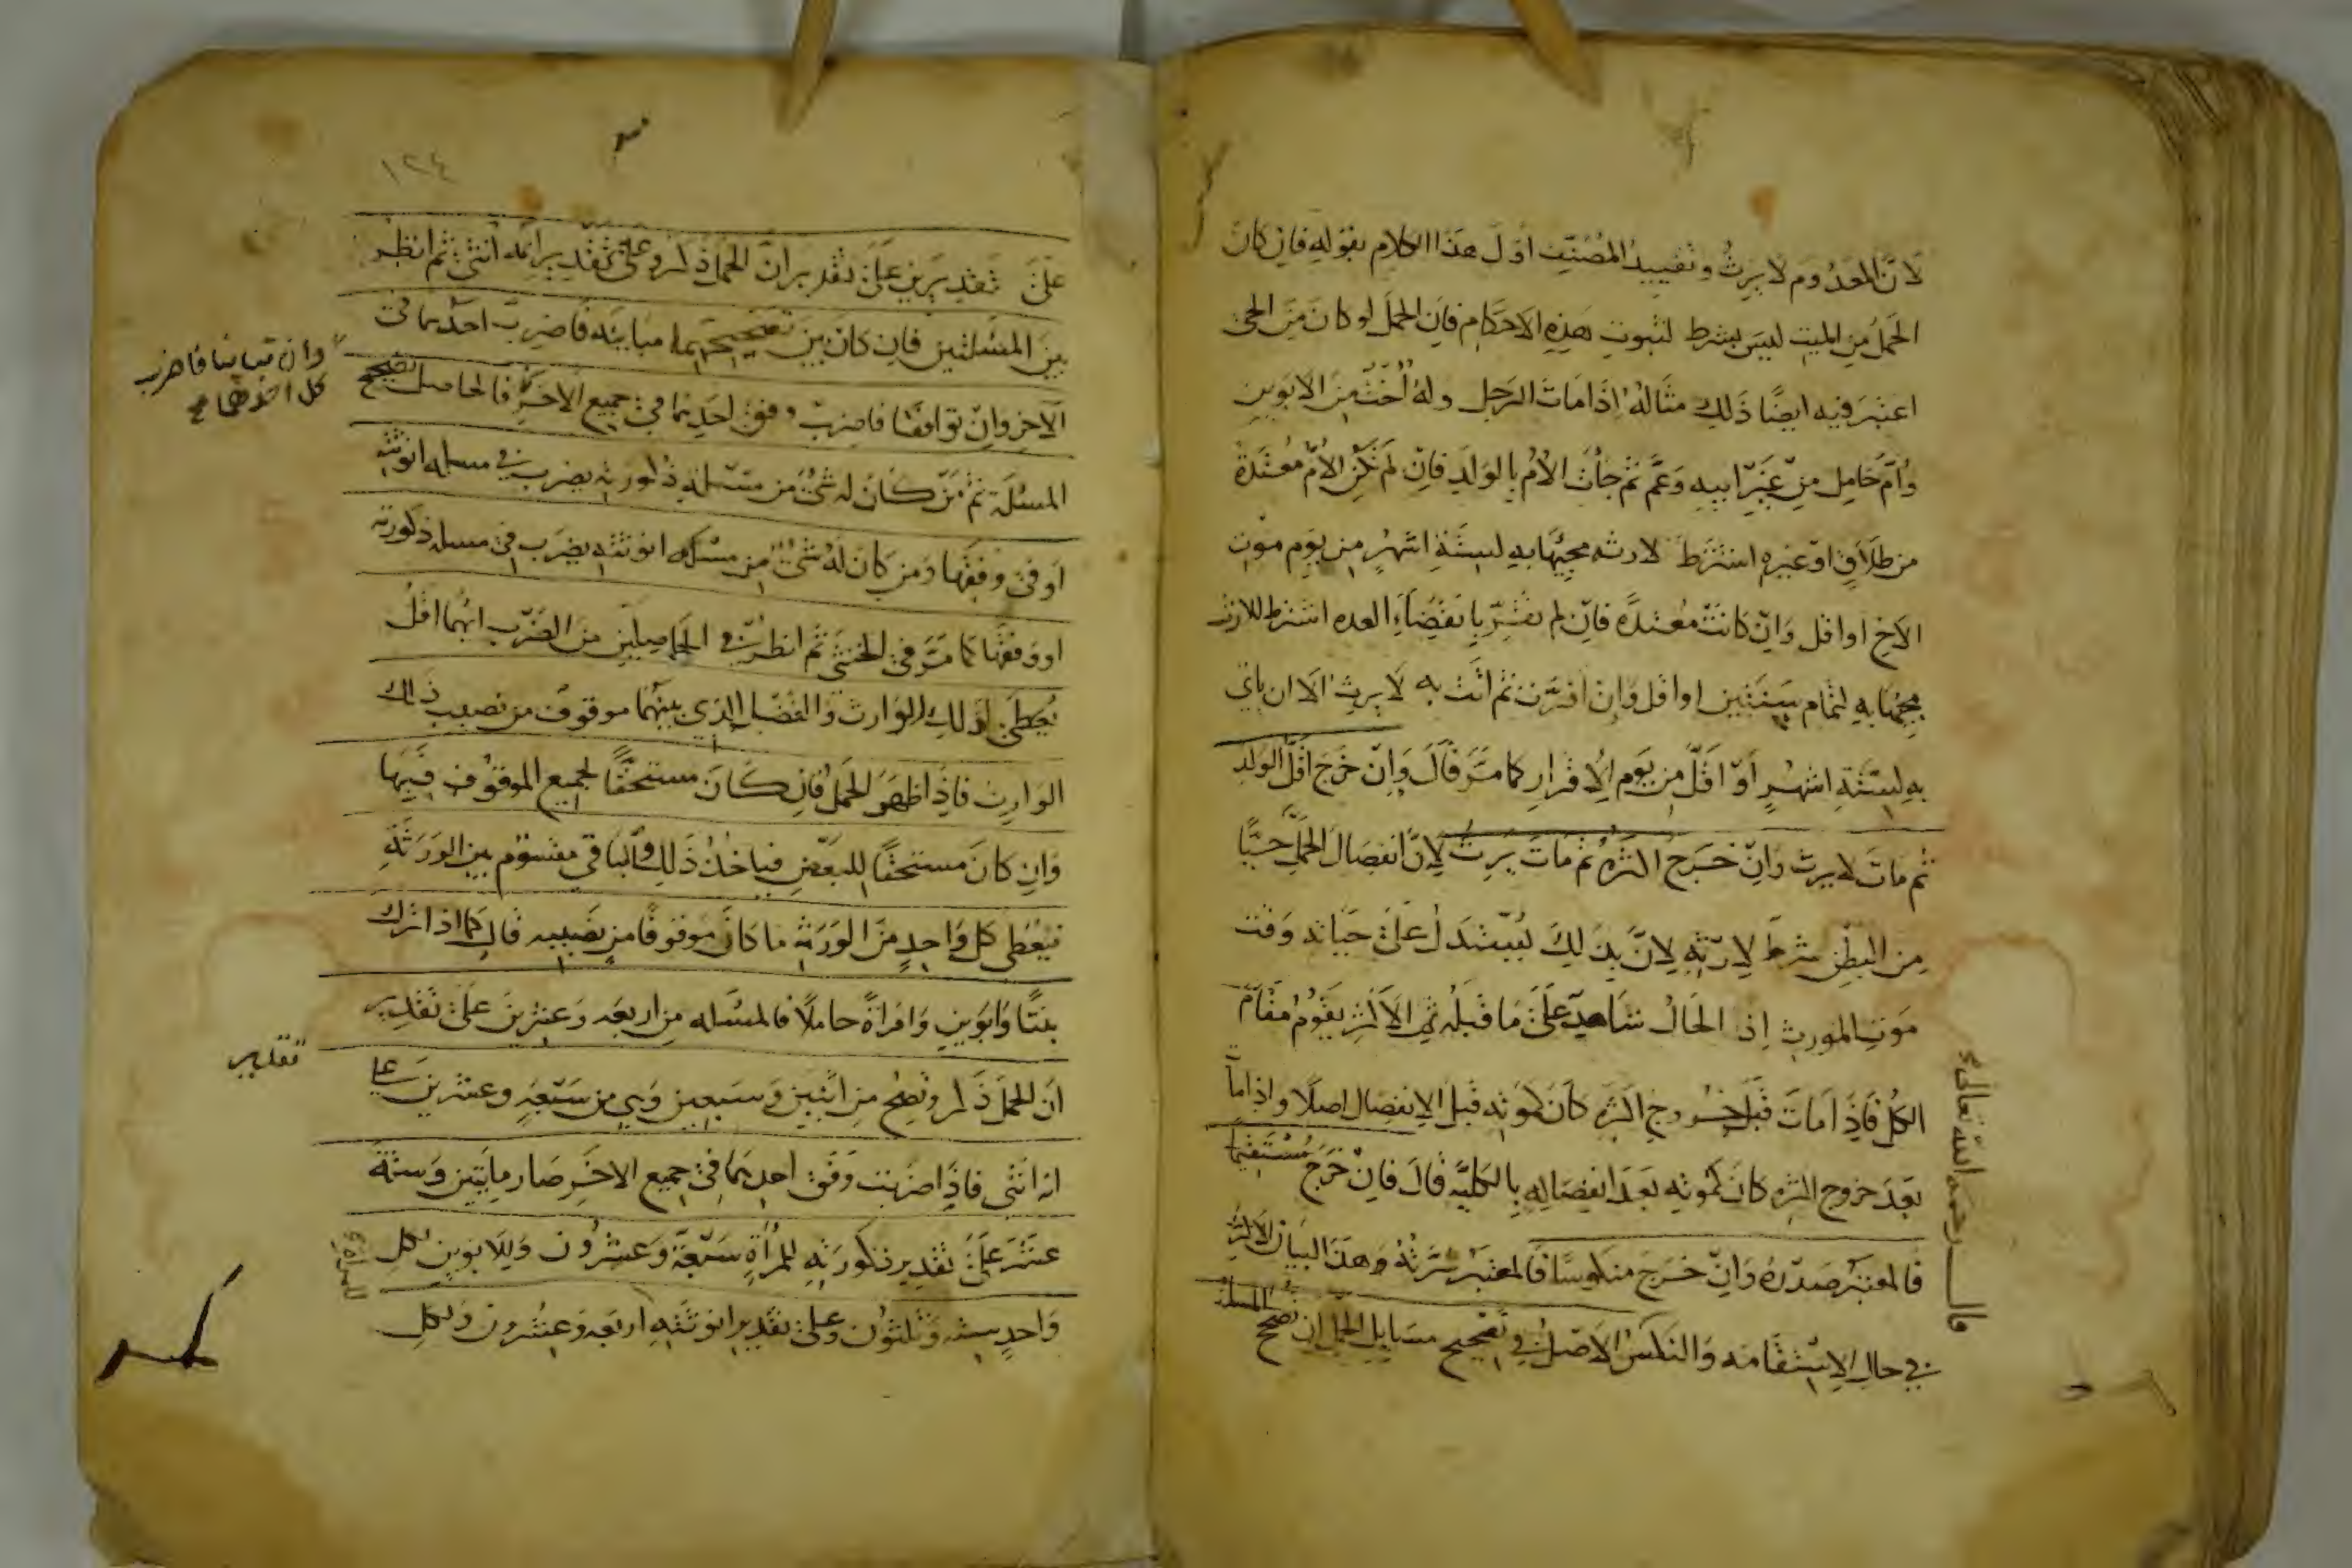 لان المعدوم لا يرث وتقييد المصنف اول هذا الكلام بقوله فان كان
الحمل من الميت ليس بشرط لثبوت هذه الاحكام فان الحمل لو كان من الحي
اعتبر فيه ايضًا ذلك مثاله اذا مات الرجل وله اخت من الابوين
وام حامل من غير ابيه وعم ثم جأت الام بالولد فان لم تكن الام معتدة
من طلاق او غيره اشترط لارثه مجيها به لستة اشهر من يوم موت
الاخ او اقل وان كانت معتدة فان لم تقر بانقضاء العده اشترط للارث
مجيها به لتمام سنتين او اقل وان اقرت ثم اتت به لا يرث الا ان ياتي
به لستة اشهر او اقل من يوم الاقرار كما مر قال وان خرج اقل الولد
ثم مات لا يرث وان خرج اكثره ثم مات يرث لان انفصال الحمل حيًا
من البطن شرط لارثه لان بذلك يستدل على حياته وقت
موت المورث اذ الحال شاهد على ما قبله ثم الاكثر يقوم مقام
الكل فاذا مات قبل خروج اكثره كان كموته قبل الانفصال اصلا واذا مات
بعد خروج اكثره كان كموته بعد انفصاله بالكلية قال فان خرج مستقيما
فالمعتبر صدره وان خرج منكوسًا فالمعتبر سرته وهذا البيان الاكثر
في حال الاستقامه والنكس الاصل في تصحيح مسايل الحمل ان تصحح المسلة
قال رحمه الله تعالى
١٢٤
على تقديرين على تقدير ان الحمل ذكر وعلى تقدير انه انثى ثم انظر
بين المسلتين فان كان بين تصحيحيهما مباينه فاضرب احدهما في
الاخر وان توافقا فاضرب وفق احدهما في جميع الاخر فالحاصل تصحيح
المسئلة ثم من كان له شئ من مسئلة ذكورته يضرب في مسله انوثته
او في وفقها ومن كان له شئ من مسئله انوثته يضرب في مسله ذكورته
او وفقها كما مر في الخنثى ثم انظر في الحاصلين من الضرب ايهما اقل
يعطى لذلك الوارث والفضل الذي بينهما موقوف من نصيب ذلك
الوارث فاذا ظهر الحمل فان كان مستحقًا لجميع الموقوف فبها
وان كان مستحقًا للبعض فياخذ ذلك والباقي مقسوم بين الورثة
فيعطى كل واحد من الورثه ما كان موقوفا من نصيبه قال كما اذا ترك
بنتًا وابوين وامراة حاملًا فالمسئله من اربعه وعشرين على تقدير
ان الحمل ذكر وتصح من اثنين وسبعين وهي من سبعة وعشرين على
انه انثى فاذا ضربت وفق احدهما في جميع الاخر صار مايتين وستة
عشر على تقدير ذكورته للمرأة سبعة وعشرون وللابوين لكل
واحد سته وثلثون وعلى تقدير انوثته اربعه وعشرون ولكل
وان تباينا فاضرب
كل احدهما في
تقدير
للمراة